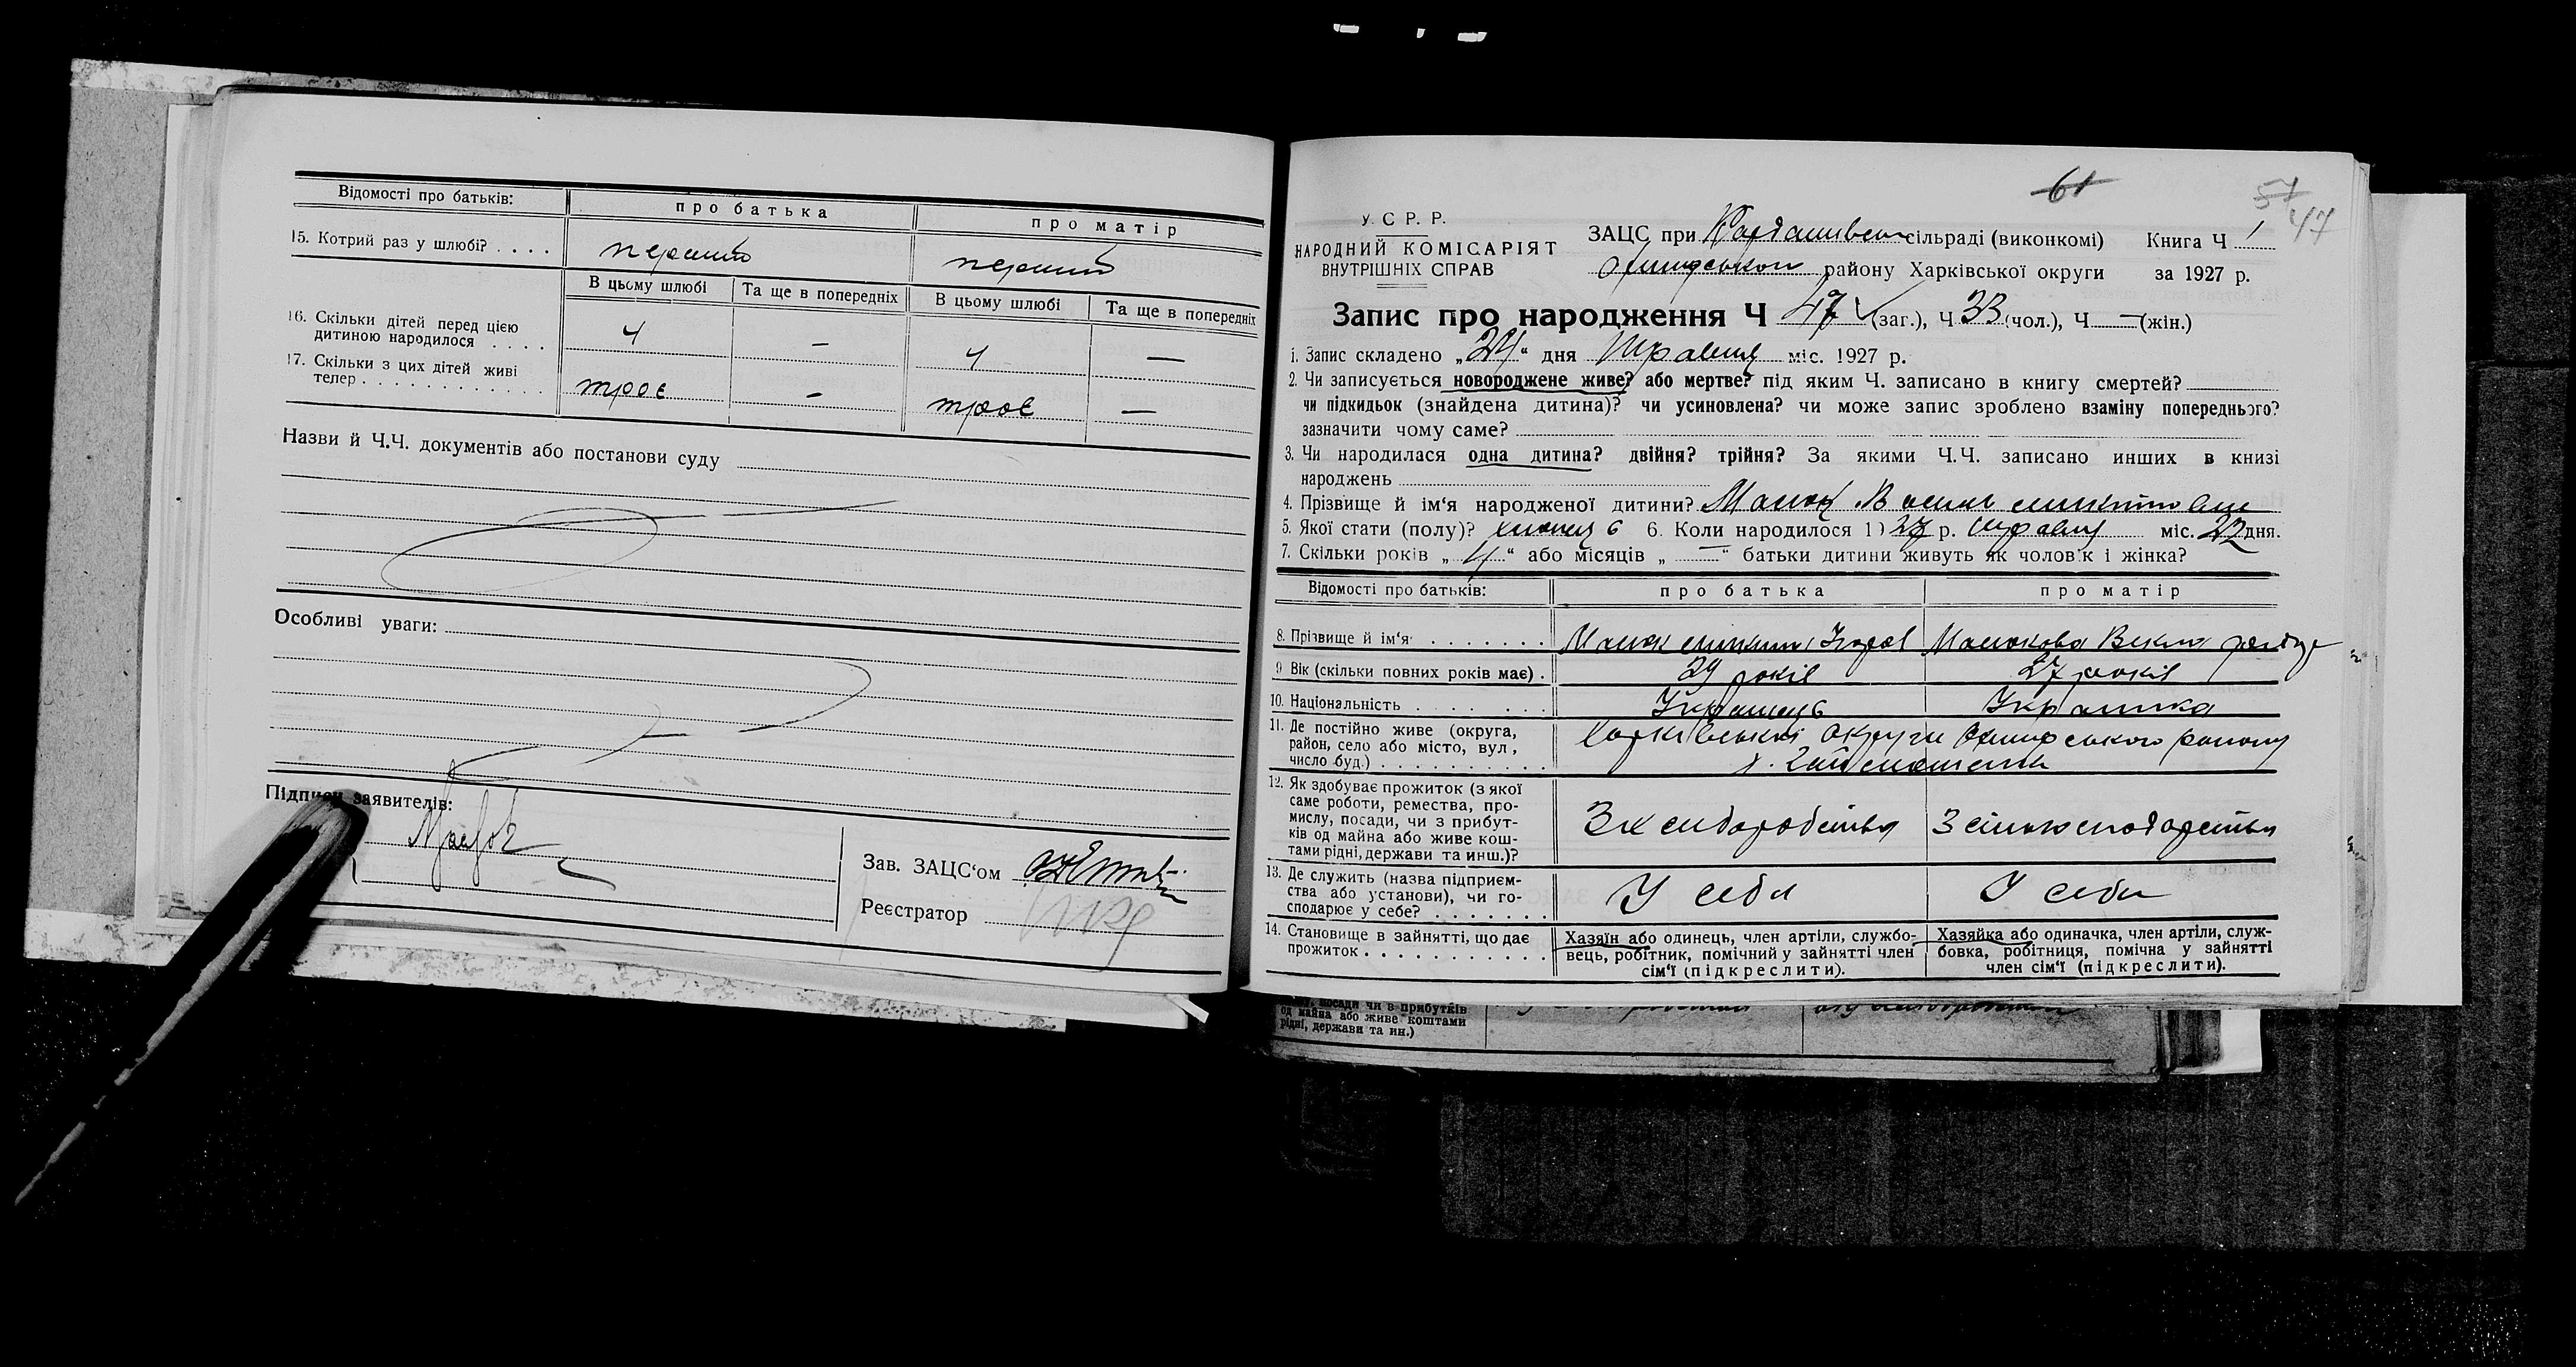 Відомості про батьків: про батька про матір
15. Котрий раз у шлюбі? . . . . перший перший
В цьому шлюбі Та ще в попередніх В цьому шлюбі Та ще в попередніх
16. Скільки дітей перед цією
дитиною народилося . . . . 4 – 4 —
17. Скільки з цих дітей живі
тепер . . . . . . . . . . . . троє – троє —
Назви й Ч.Ч. документів або постанови суду
Особливі уваги:
Підписи заявителів:
Зав. ЗАЦС‘ом
Реєстратор
61
57
47
У. С. Р. Р.
НАРОДНИЙ КОМІСАРІЯТ
ВНУТРІШНІХ СПРАВ
ЗАЦС при сільраді (виконкомі) Книга Ч 1
району Харківської округи за 1927 р.
Запис про народження Ч 47 (заг.), Ч 33 (чол.), Ч — (жін.)
1. Запис складено „24“ дня Травня міс. 1927 р.
2. Чи записується новороджене живе? або мертве? під яким Ч. записано в книгу смертей?
чи підкидьок (знайдена дитина)? чи усиновлена? чи може запис зроблено взаміну попереднього?
зазначити чому саме?
3. Чи народилася одна дитина? двійня? трійня? За якими Ч.Ч. записано инших в книзі
народжень
4. Прізвище й ім‘я народженої дитини?
5. Якої стати (полу)? 6. Коли народилося 1927 р. Травня міс. 22 дня.
7. Скільки років „ 4 “ або місяців „ — “ батьки дитини живуть як чоловік і жінка?
Відомості про батьків: про батька про матір
8. Прізвище й ім‘я . . . . . . . Манюкова Векла
9. Вік (скільки повних років має) . 29 років 27 років
10. Національність . . . . . . . Українець Українка
11. Де постійно живе (округа,
район, село або місто, вул.,
число буд.) . . . . . . . . . . Харківської округи району
12. Як здобуває прожиток (з якої
саме роботи, ремества, про-
мислу, посади, чи з прибут-
ків од майна або живе кош-
тами рідні, держави та инш.)?
13. Де служить (назва підприєм-
ства або установи), чи го-
сподарює у себе? . . . . . . . У себе У себе
14. Становище в зайнятті, що дає
прожиток . . . . . . . . . . .
Хазяїн або одинець, член артіли, службо-
вець, робітник, помічний у зайнятті член
сім‘ї (підкреслити).
Хазяйка або одиначка, член артіли, служ-
бовка, робітниця, помічна у зайнятті
член сім‘ї (підкреслити).
посади чи в прибутків
од майна або живе коштами
рідні, держави та ин.)